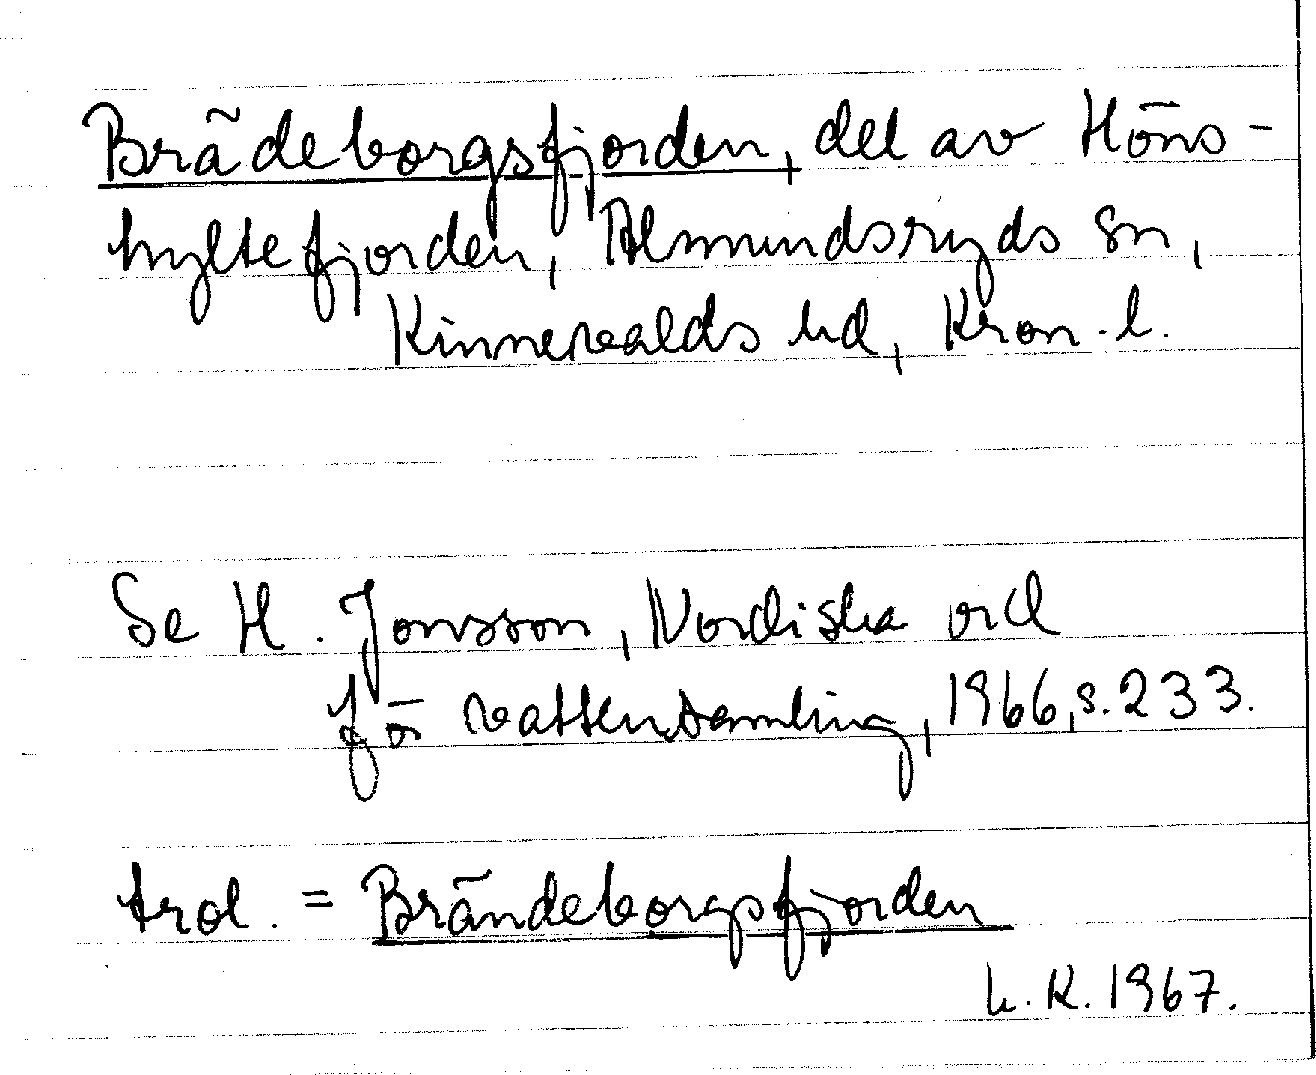 Brädeborgsfjorden, del av Höns-
hyltefjorden, Almundsryds sn,
Kinnevalds hd, Kron. l.
Se H. Jonsson, Nordiska ord
för vattensamling, 1966, s. 233.
trol. = Brändeborgsfjorden
L. K. 1967.